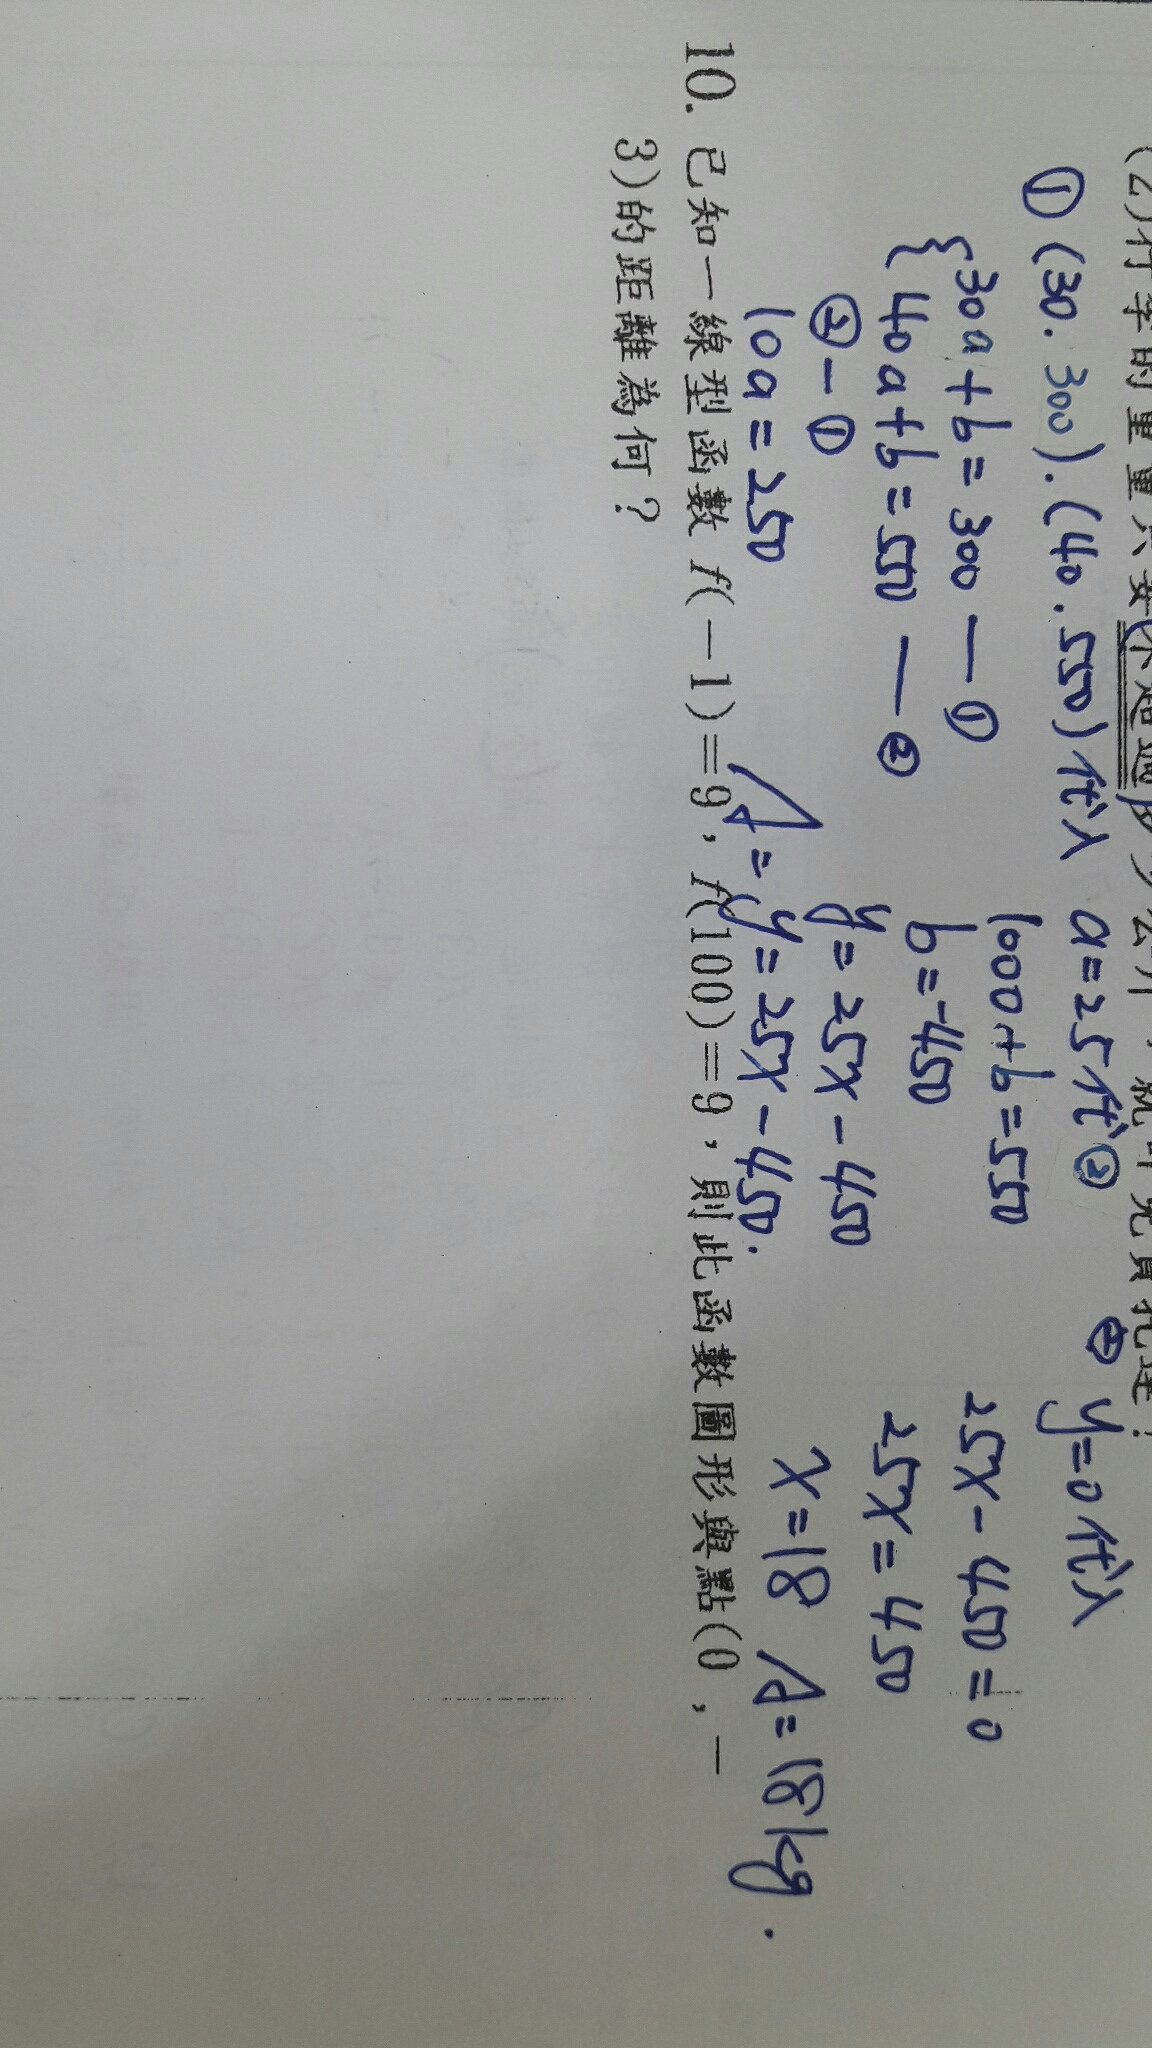 (2)行李的重量只要不超過多少公斤，就可免費托運？
① (30. 300). (40. 550)代入
{30a+b=300 — ①
40a+b=550 — ②
② — ①
10a=250
a=25代②
1000+b=550
b=-450
y=25x-450
A= y=25x-450.
㊁ y=0代入
25x-450=0
25x=450
x=18 A=18kg.
10. 已知一線型函數 f(－1)=9，f(100)=9，則此函數圖形與點(0，－
3)的距離為何？